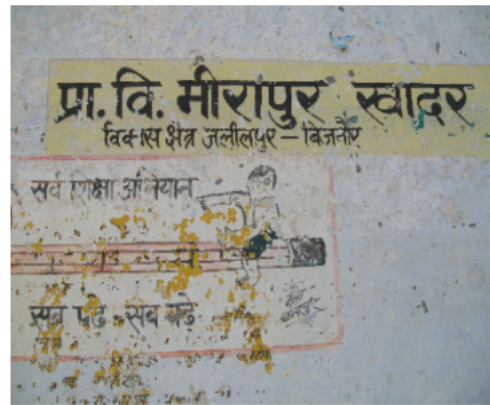 प्रा. वि. मीरापुर खादर
विकास क्षेत्र जलीलपुर - बिजनौर
सर्व शिक्षा अभियान
सब पढें सब बढें